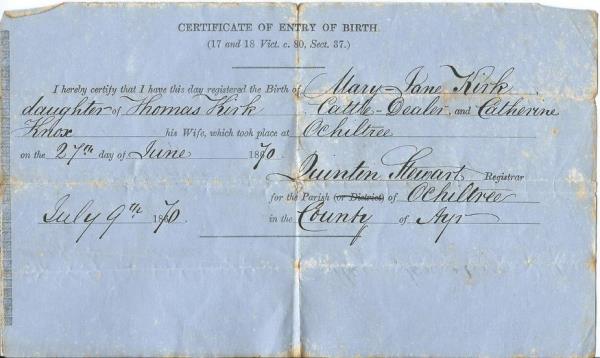 CERTIFICATE OF ENTRY OF BIRTH.
(17 and 18 Vict. c. 80, Sect. 37.)
I hereby certify that I have this day registered the Birth of Mary-Jane Kirk
daughter of Thomas Kirk Cattle-Dealer, and Catherine
Knox his Wife, which took place at Ochiltree
on the 27th day of June 1870.
Quintin Stewart Registrar
for the Parish (or District) of Ochiltree
July 9th 1870 in the County of Ayr